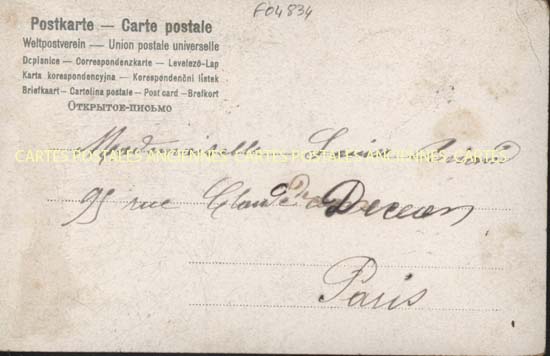 F04834
Postkarte — Carte postale
Weltpostverein — Union postale universelle
Dcplanice — Correspondenzkarte — Levelező-Lap
Karta korespondencyjna — Korespondenční lístek
Briefkaart — Cartolina postale — Post card — Brefkort
ОТКРЫТОЕ-ПИСЬМО
Mademoiselle Lucie
CARTES POSTALES ANCIENNES CARTES POSTALES ANCIENNES CARTES
95 rue Claude Decaen
Paris